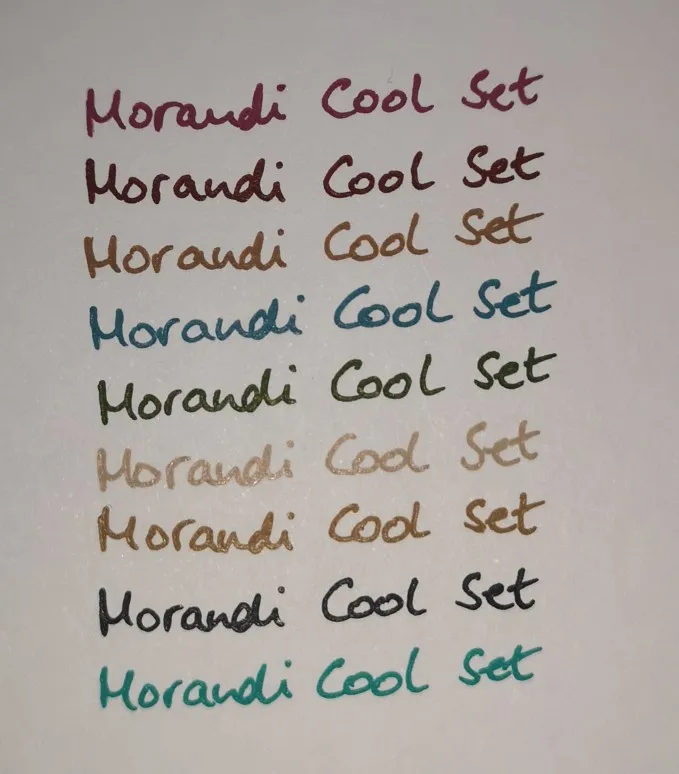 Morandi Cool Set
Morandi Cool Set
Morandi Cool Set
Morandi Cool Set
Morandi Cool Set
Morandi Cool Set
Morandi Cool Set
Morandi Cool Set
Morandi Cool Set